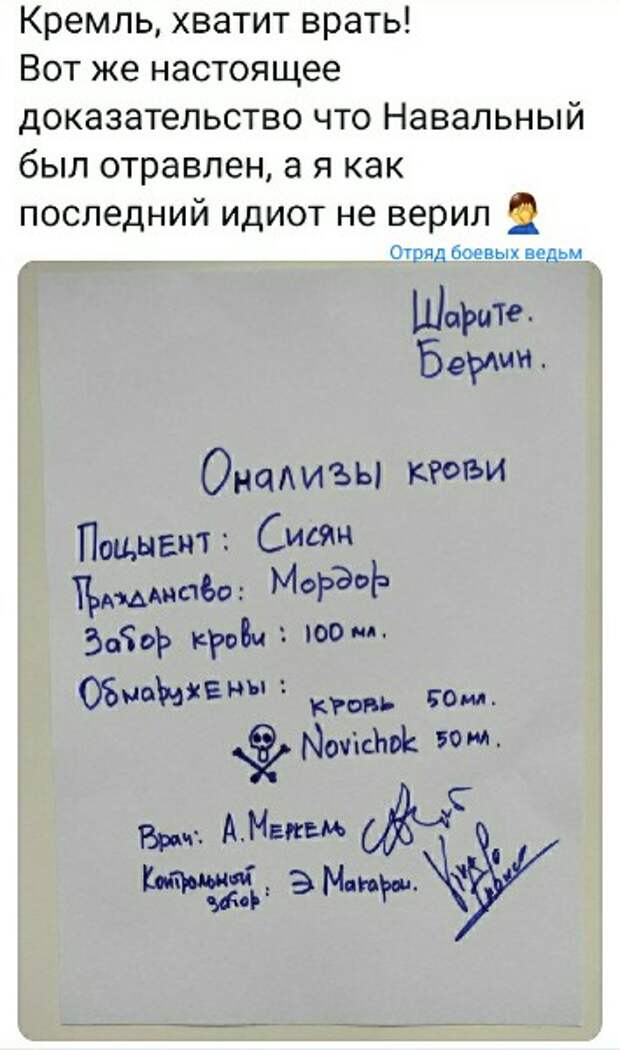 Кремль, хватит врать!
Вот же настоящее
доказательство что Навальный
был отравлен, а я как
последний идиот не верил 🤦‍♂️
Отряд боевых ведьм
Шарите.
Берлин.
Онализы крови
Поцыент: Сисян
Гражданство: Мордор
Забор крови: 100 мл.
Обнаружены:
кровь 50мл.
Novichok 50мл.
Врач: А.Меркель
Контрольный забор: Э Макарон.